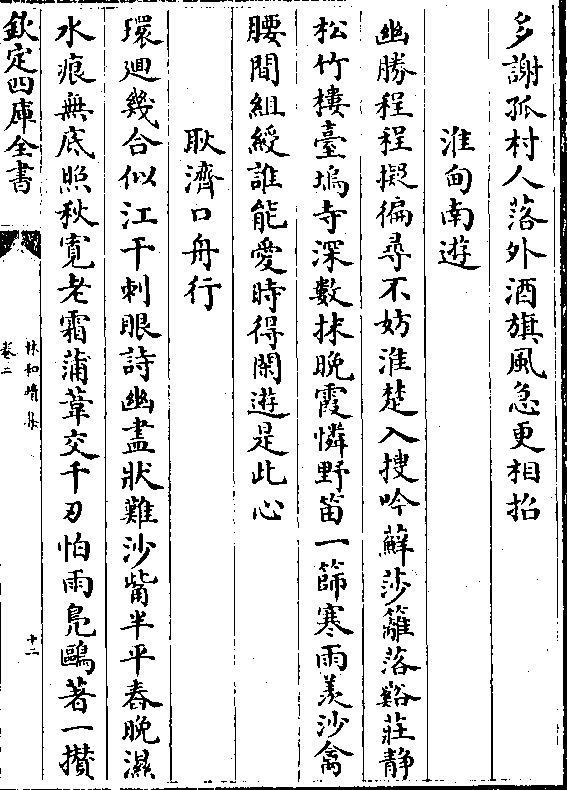 多謝孤村人落外酒旗風急更相招
淮甸南遊
幽勝程程擬徧尋不妨淮楚入搜吟蘚莎籬落谿莊靜
松竹樓臺塢寺深數抹晚霞憐野笛一篩寒雨羨沙禽
腰間組綬誰能愛時得閑遊是此心
耿濟口舟行
環廻幾合似江干刺眼詩幽盡狀難沙觜半平春晚濕
水痕無底照秋寛老霜蒲葦交千刃怕雨鳧鷗著一攅
欽定四庫全書
林和靖集
卷二
十二